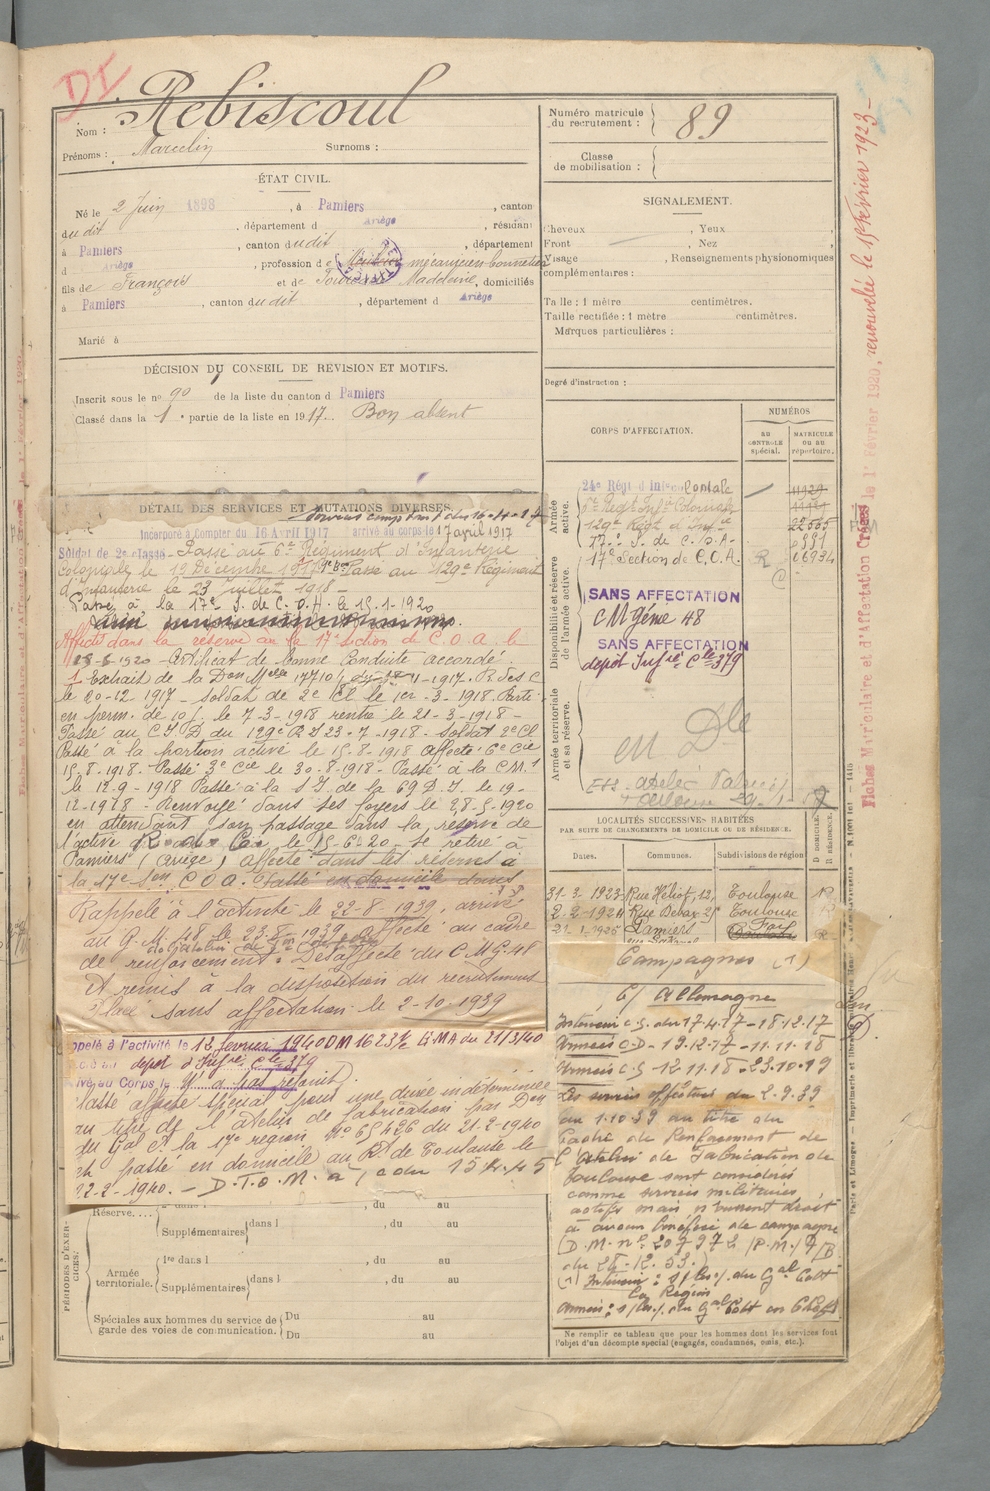 DI
Nom : Rebiscoul
Prénoms : Marcelin Surnoms :
Numéro matricule du recrutement : 89
Classe de mobilisation :
ÉTAT CIVIL.
Né le 2 Juin 1898, à Pamiers, canton
dudit, département d Ariège, résidant
à Pamiers, canton dudit, département
d Ariège, profession de mécanicien bonnetier
fils de François et de Madeleine, domiciliés
à Pamiers, canton dudit, département d Ariège
Marié à
SIGNALEMENT.
Cheveux , Yeux
Front , Nez
Visage , Renseignements physionomiques
complémentaires :
Taille : 1 mètre centimètres.
Taille rectifiée : 1 mètre centimètres.
Marques particulières :
Degré d'instruction :
DÉCISION DU CONSEIL DE REVISION ET MOTIFS.
Inscrit sous le no 90 de la liste du canton d Pamiers
Classé dans la 1e partie de la liste en 1917. Bon absent
DÉTAIL DES SERVICES ET MUTATIONS DIVERSES.
Incorporé à Compter du 16 Avril 1917 arrivé au corps le 17 avril 1917
Soldat de 2e classe - Passé au 6e Régiment d'Infanterie
Coloniale le 19 Décembre 1917. Passé au 129e Régiment
d'Infanterie le 23 Juillet 1918 -
Passé à la 17e S. de C.O.A. le 15.1-1920
Affecté dans la réserve au la 17e Section de C.O.A. le
-1920 - Certificat de bonne Conduite accordé
le 20-12-1917 - soldat de 2e Cl le 1er-3-1918. Parti
en perm. de 10 j. le 7-3-1918 rentré le 21-3-1918 -
Passé au C I D du 129e R I 23-7-1918 - Soldat 2e Cl.
Passé à la portion active le 15-8-1918 affecté 6e Cie
15-8-1918 - Passé 3e Cie le 30-8-1918 - Passé à la C M 1
le 12-9-1918 Passé à la S I de la 69 D.I. le 19-
12-1918 - Renvoyé dans ses foyers le 28-5-1920
en attendant son passage dans la réserve de
l'active le 15-6-20 - Se retire à
Pamiers (Ariège) affecté dans les réserves à
la 17e Son C O A. Passé en domicile dans
Rappelé à l'activité le 22-8-1939, arrivé
au G.M 48 le 23-8-1939. affecté au cadre
de renforcement. Désaffecté du C M G. 48
Et remis à la disposition du recrutement
Placé sans affectation le 2-10-1939
Rappelé à l'activité le 12 février 1940 DM 1623 1/c G.MA du 21/3/40
dépôt d'Infrie Cle 379
Arrivé au Corps le (N'a pas rejoint)
Classé affecté spécial pour une durée indéterminée
au titre de l'atelier de fabrication par Don
du Gal Ct la 17e région, No 65426 du 21-2-1940
et passé en domicile au Rt de Toulouse le
22-2-1940. - D.T.O.M. à c du 15-4-45
CORPS D'AFFECTATION.
NUMÉROS
AU CONTROLE spécial.
MATRICULE ou au répertoire.
Armée active.
24e Régt d'Infie Coloniale
6e Régt Infie Coloniale
129e Régt d'Infie 22565
17e S. de C.O.A.
Disponibilité et réserve de l'armée active.
17e Section de C.O.A. R
SANS AFFECTATION
C M Génie 48
SANS AFFECTATION
dépôt Infrie Cle 379
Armée territoriale et sa réserve.
en Dle
Toulouse
LOCALITÉS SUCCESSIVES HABITÉES
PAR SUITE DE CHANGEMENTS DE DOMICILE OU DE RÉSIDENCE.
Dates. Communes. Subdivisions de région D DOMICILE R RÉSIDENCE.
31-3 1923 Rue Héliot, 12, Toulouse R
2-2-1924 Toulouse
21-1-1925 Pamiers Foix R
Campagnes (1)
C/ Allemagne
Intérieur C.S. du 17-4-17 - 18.12.17
Armées C.D - 19.12.17 - 11.11.18
Armées C.S - 12.11.18 - 23.10.19
Les services effectués du 2.9.39
au 1.10.39 au titre du
Cadre de Renforcement de
l'Atelier de Fabrication de
Toulouse sont considérés
comme services militaires
actifs mais n'ouvrent droit
à aucun bénéfice de campagne
(D.M. no 20797 2 /P.M./
du 28.12.53.
PÉRIODES D'EXERCICES.
Réserve.... dans l , du au
Supplémentaires dans l , du au
Armée territoriale. 1re dans l , du au
Supplémentaires dans l , du au
Spéciales aux hommes du service de garde des voies de communication. Du au
Du au
Ne remplir ce tableau que pour les hommes dont les services font
l'objet d'un décompte spécial (engagés, condamnés, omis, etc.).
Fiches Matriculaire et d'Affectation Créées le 1er Février 1920, renouvelé le 15 Février 1923 -